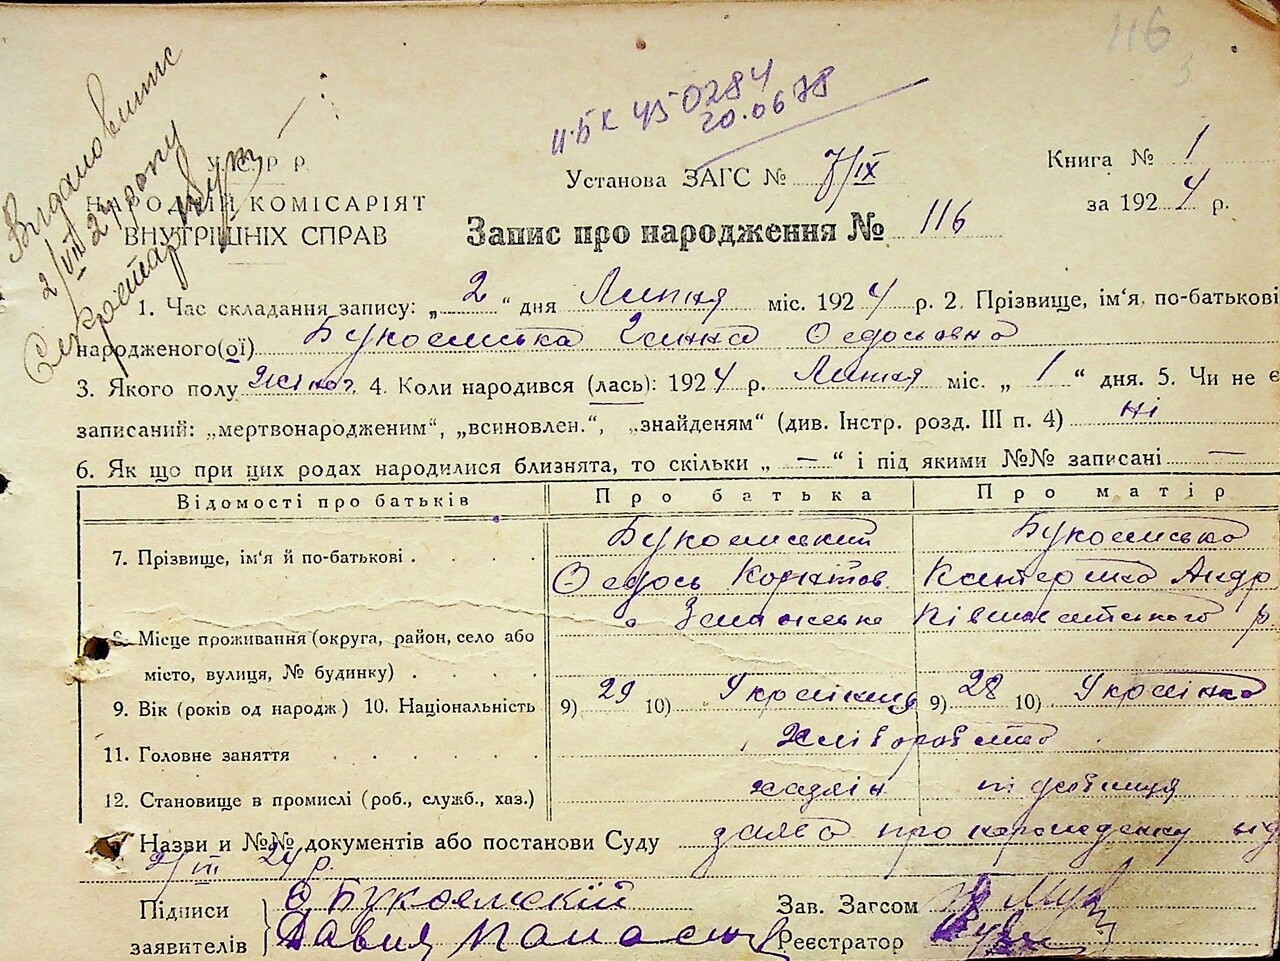 116
3
ІІ-БК 450284
20.06.78
Видано витс
2/VIII 24 року
Секретар
У.С.Р Р.
НАРОДНІЙ КОМІСАРІЯТ
ВНУТРІШНІХ СПРАВ
Установа ЗАГС № 7/IX
Книга № 1
за 1924 р.
Запис про народження № 116
1. Час складання запису: „2“ дня Липня міс. 1924 р. 2. Прізвище, ім'я, по-батькові
народженого(ої) Букоємська Ганна Федосьовна
3. Якого полу жіноч. 4. Коли народився (лась): 1924 р. Липня міс. „1“ дня. 5. Чи не є
записаний: „мертвонародженим“, „всиновлен.“, „знайденям“ (див. Інстр. розд. III п. 4) ні
6. Як що при цих родах народилися близнята, то скільки „—“ і під якими №№ записані —
Відомості про батьків Про батька Про матір
7. Прізвище, ім'я й по-батькові . . . . Букоємський Букоємська
Федось Кондтов Катерина Андр
8. Місце проживання (округа, район, село або
місто, вулиця, № будинку) . . . .
9. Вік (років од народж) 10. Національність 9) 29 10) Українця 9) 28 10) Українка
11. Головне заняття . . . . . . Хліборобство
12. Становище в промислі (роб., служб., хаз.) хазяїн
Назви и №№ документів або постанови Суду заява про народження від
2/VII 24 р.
Підписи Ф Букоємскій Зав. Загсом
заявителів Давид Реєстратор